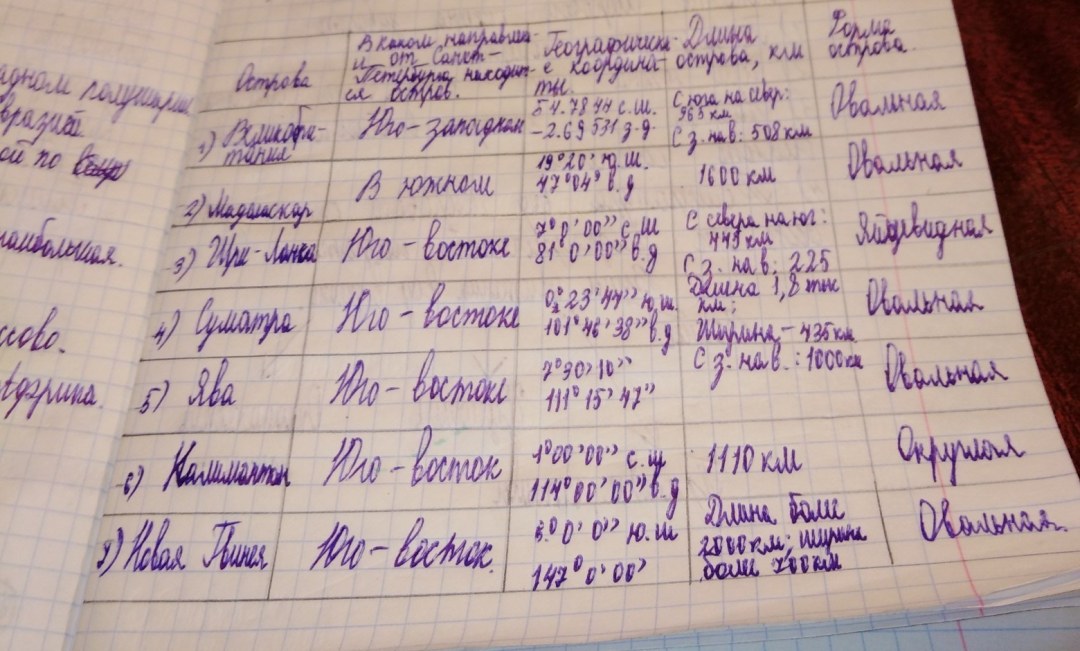 адном полушарии
ой по
наибольшая.
Острова
В каком направлени-
и от Санкт-
Петербурга находит-
ся остров.
Географически-
е координа-
ты.
Длина
острова, км
Форма
острова.
1) Великобри-
тания
Юго-западном
54.7844 с.ш.
-2.69531 з.д.
С юга на север:
965 км
С з. на в: 508 км
Овальная
2) Мадагаскар
В южном
19°20' ю.ш.
47°04' в.д
1600 км
Овальная
3) Шри-Ланка
Юго-востоке
7°0'00'' с.ш
81°0'00'' в.д
С севера на юг:
445 км
С з. на в: 225
Яйцевидная
4) Суматра
Юго-востоке
0°23'44'' ю.ш.
101°46'38'' в.д
Длина 1,8 тыс
км;
Ширина - 435 км
Овальная
5) Ява
Юго-востоке
7°30'10''
111°15'47''
С з. на в. : 1000 км
Овальная
6) Калимантан
Юго-восток
1°00'00'' с.ш
114°00'00'' в.д
1110 км
Округлая
7) Новая Гвинея
Юго-восток.
5°0'0'' ю.ш
147°0'00'
Длина более
2000 км; ширина
более 700 км
Овальная.